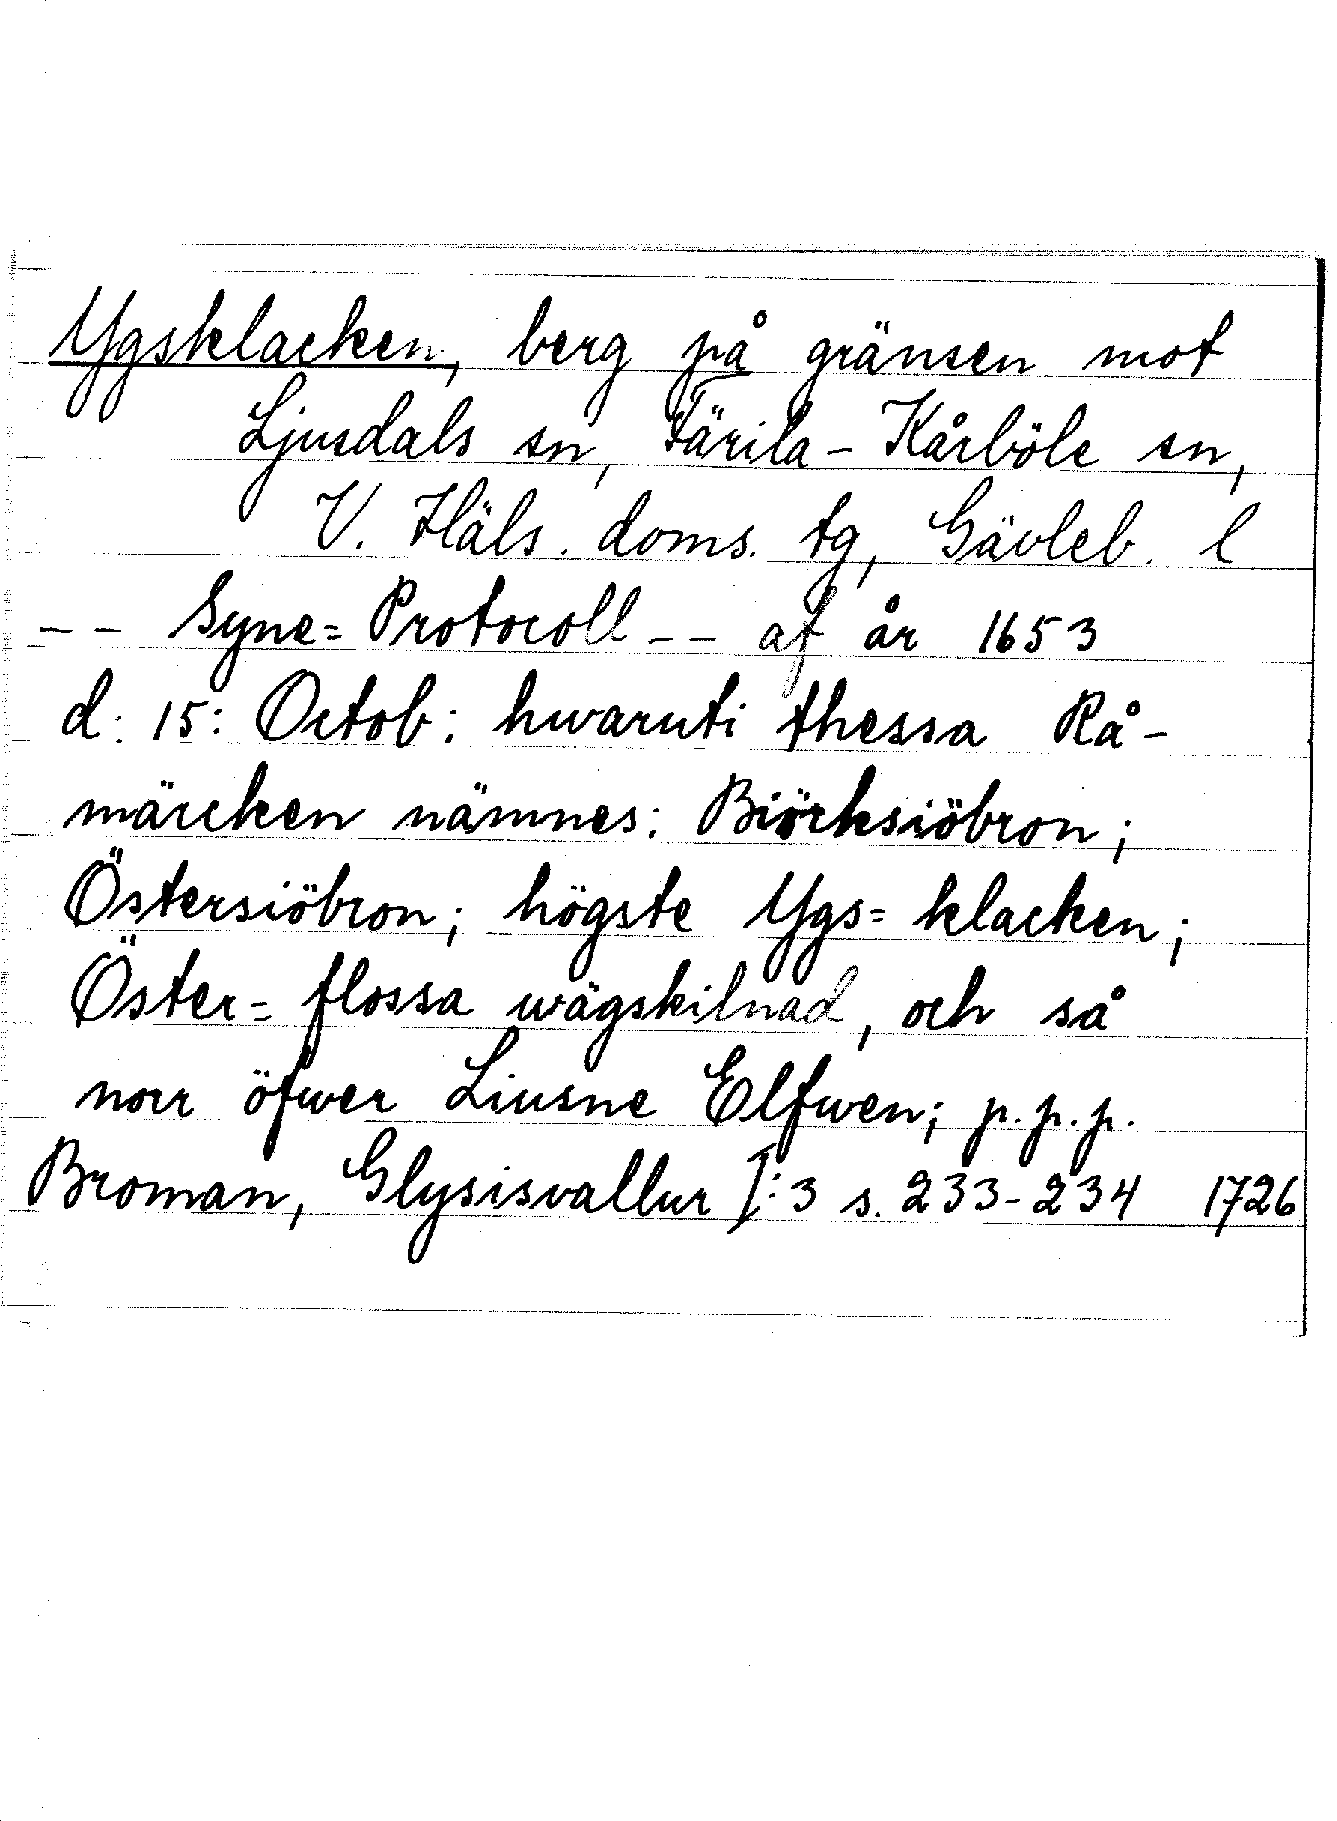 Ygsklacken, berg på gränsen mot
Ljusdals sn, Färila-Kårböle sn,
V. Häls. doms. tg, Gävleb. l
-- Syne=Protocoll -- af år 1653
d. 15: Octob: hwaruti thessa Rå-
märcken nämnes: Biörksiöbron;
Östersiöbron; högste Ygs=klacken;
Öster=flossa wägskilnad, och så
norr öfwer Liusne Elfwen; p.p.p.
Broman, Glysisvallur I:3 s. 233-234 1726